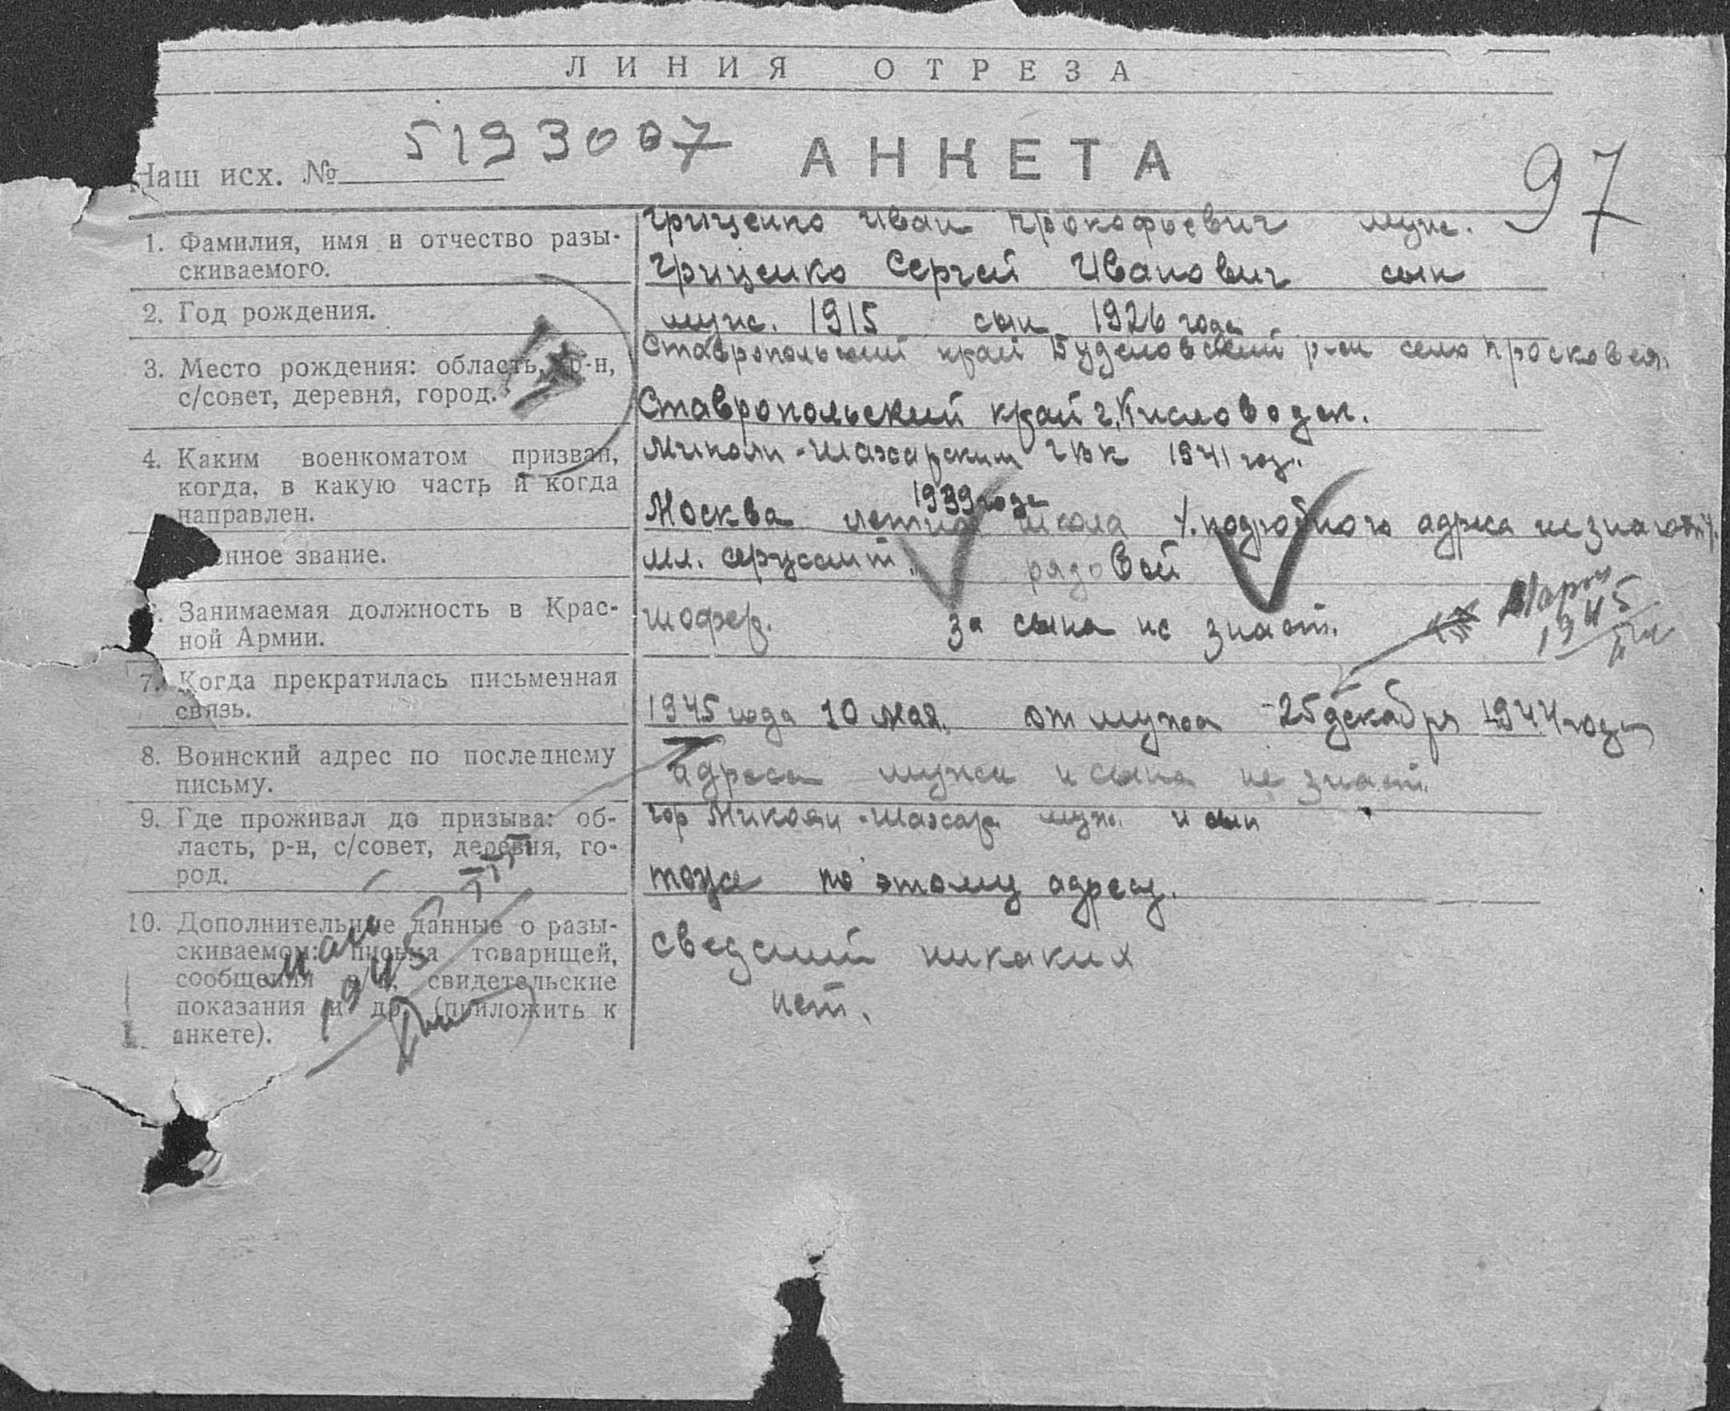 ЛИНИЯ ОТРЕЗА
Наш исх. № 5193007 АНКЕТА 97
1. Фамилия, имя и отчество разы-
скиваемого.
Гриценко Иван Прокофьевич муж.
Гриценко Сергей Иванович сын
2. Год рождения.
муж. 1915 сын 1926 года
3. Место рождения: область, р-н,
с/совет, деревня, город.
Ставропольский край Буденовский р-он село Прасковея
Ставропольский край г. Кисловодск.
4. Каким военкоматом призван,
когда, в какую часть и когда
направлен.
Микоян-Шахарским ГВК 1941 год.
1939 года
Москва летная школа /. подробного адреса не знают /.
енное звание.
мл. сержант. рядовой
Занимаемая должность в Крас-
ной Армии.
шофер. за сына не знает.
1945
7. Когда прекратилась письменная
связь.
1945 года 10 мая. от мужа 25 декабря 1944 года
8. Воинский адрес по последнему
письму.
адреса мужа и сына не знает.
9. Где проживал до призыва: об-
ласть, р-н, с/совет, деревня, го-
род.
гор Микоян-Шахар муж. и сын
тоже по этому адресу.
10. Дополнительные данные о разы-
скиваемом: письма товарищей,
сообщения в/ч, свидетельские
показания и др. (приложить к
анкете).
сведений никаких
нет.
май
1945